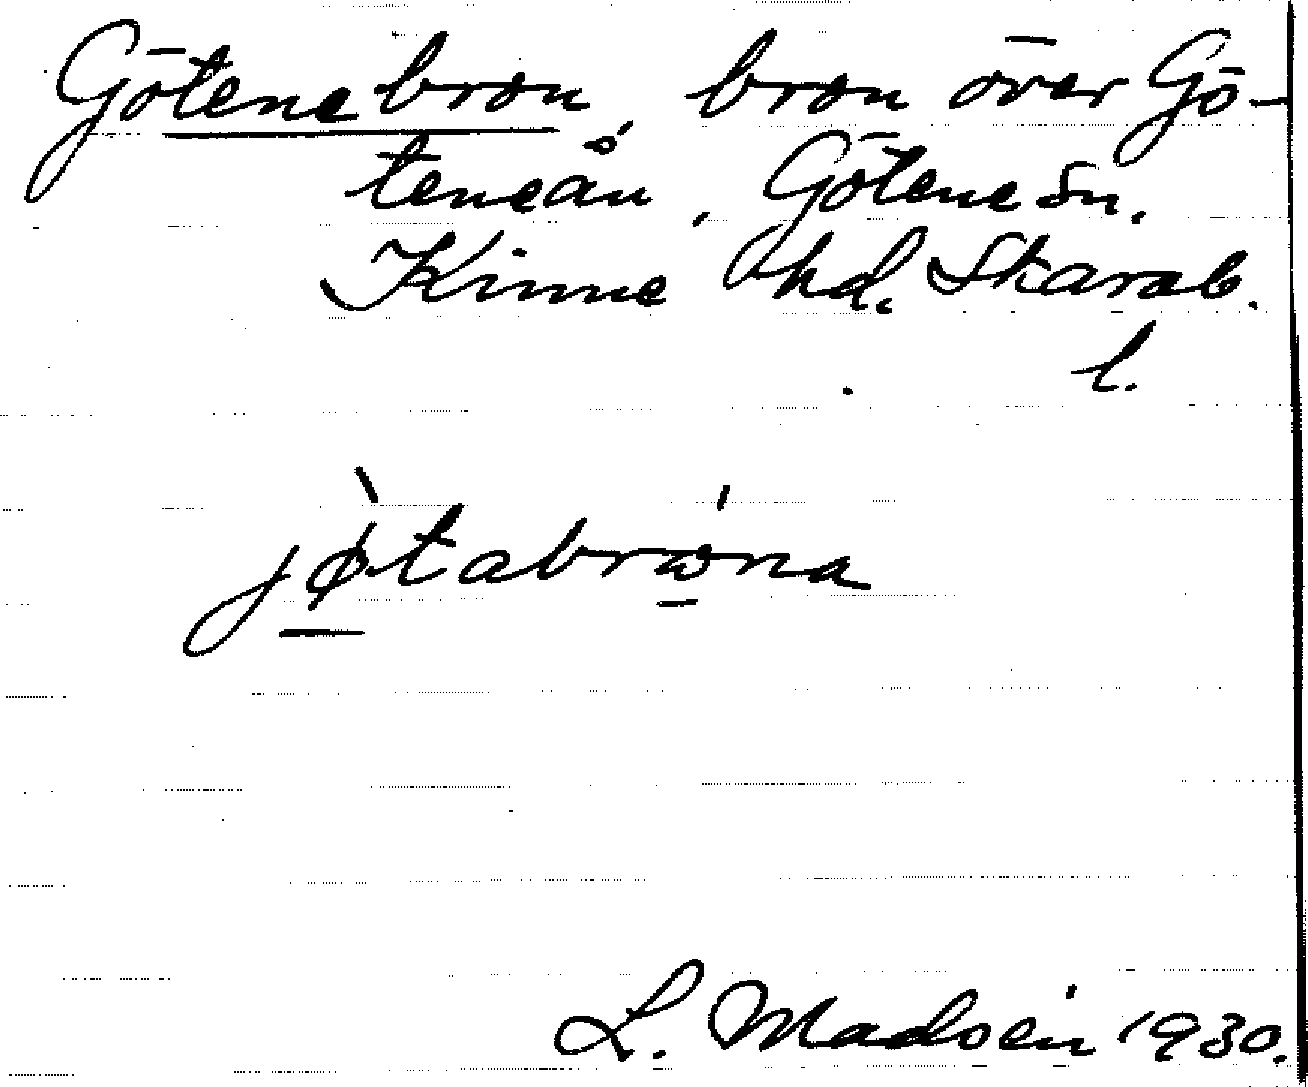 Götenebron, bron över Gö-
teneån, Götene sn.
Kinne hd. Skarab.
l.
jø̀tabrώna
L. Madsén 1930.